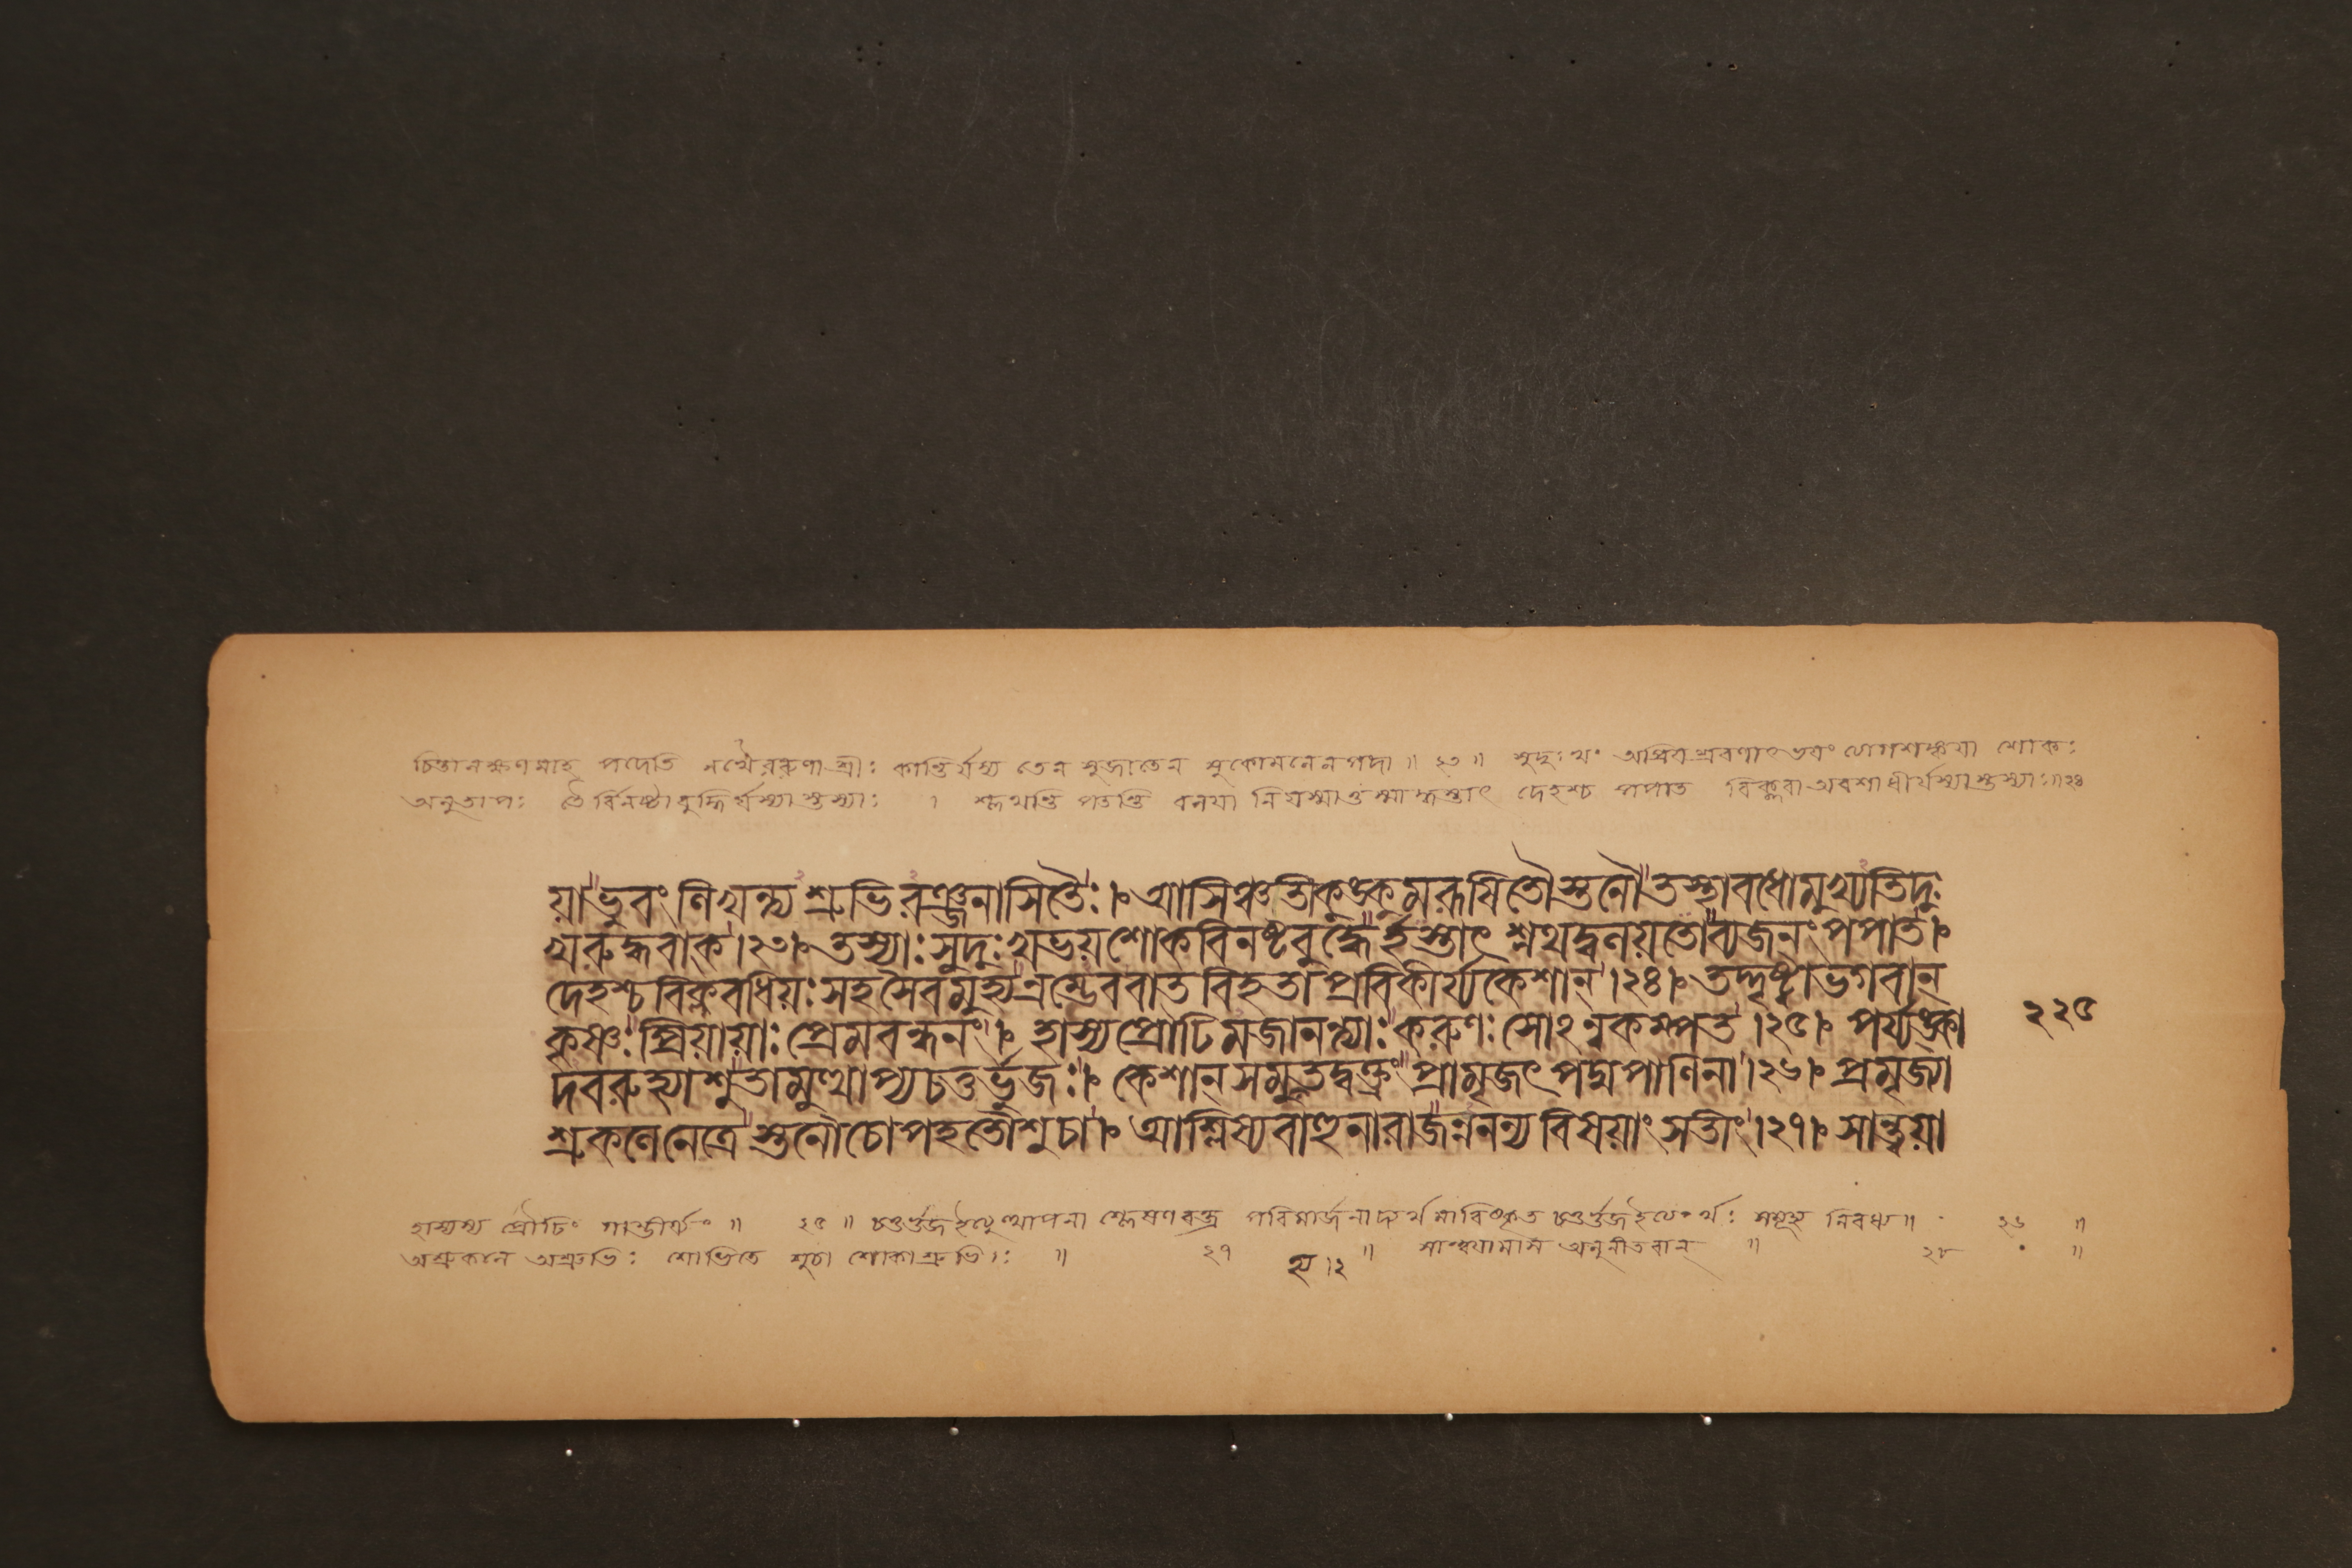 চিন্তানক্ষণমাহ পদেতি নখৈররুণা শ্রীঃ কান্তির্যস্য তেন সুজাতেন সুকোমলেন পদা॥ ২৩॥ সুদুঃখং অপ্রিয়শ্রবণাৎ ভয়ং ত্যাগশঙ্কয়া শোকঃ
অনুতাপঃ তৈর্বিনষ্টা বুদ্ধির্যস্যাস্তস্যাঃ । শ্লথন্তি পতন্তি বলয়া নি যস্মাত্তস্মাদ্ধস্তাৎ দেহশ্চ পপাত বিক্লবা অবশা ধীর্যস্যাস্তস্যাঃ॥২৪
য়া ভুবং লিখন্ত্য শ্রুভিরঞ্জনাসিতৈঃ।। আসিঞ্চতী কুঙ্কুমরূষিতৌ স্তনৌ তস্থাবধোমুখ্যতিদুঃ
খরুদ্ধবাক্।২৩। তস্যাঃ সুদুঃখভয়শোকবিনষ্টবুদ্ধের্হস্তাৎ শ্লথদ্বলয়তো ব্যজনং পপাত।
দেহশ্চ বিক্লবধিয়ঃ সহসৈব মুহ্যন্রম্ভেব বাতবিহতা প্রবিকীর্য্য কেশান্।২৪। তদ্দৃষ্ট্বা ভগবান্
কৃষ্ণঃ প্রিয়ায়াঃ প্রেমবন্ধনং। হাস্যপ্রৌঢিমজানন্ত্যাঃ করুণঃ সোঽন্বকম্পত।২৫। পর্য্যঙ্কা
২২৫
দবরুহ্যাশু তামুত্থাপ্য চতুর্ভুজঃ। কেশান্ সমুহ্য তদ্বক্ত্রং প্রামৃজৎ পদ্মপাণিনা।২৬। প্রমৃজ্যা
শ্রুকলে নেত্রে স্তনৌ চোপহতৌ শুচা। আশ্লিষ্য বাহুনা রাজন্ননন্য বিষয়াং সতীং।২৭। সান্ত্বয়া
হাস্যস্য প্রৌঢিং গাম্ভীর্যং॥ ২৫॥ চতুর্ভুজ ইত্যুত্থাপনা শ্লেষণবক্ত্র পরিমার্জনাদ্যর্থমাবিষ্কৃত চতুর্ভুজ ইত্যর্থঃ সমুহ্য নিবধ্য॥ ২৬ ॥
অশ্রুকলে অশ্রুভিঃ শোভিতে শুচা শোকাশ্রুভিঃ ॥ ২৭ ॥ সান্ত্বয়ামাস অনুনীতবান্ ॥ ২৮ ॥